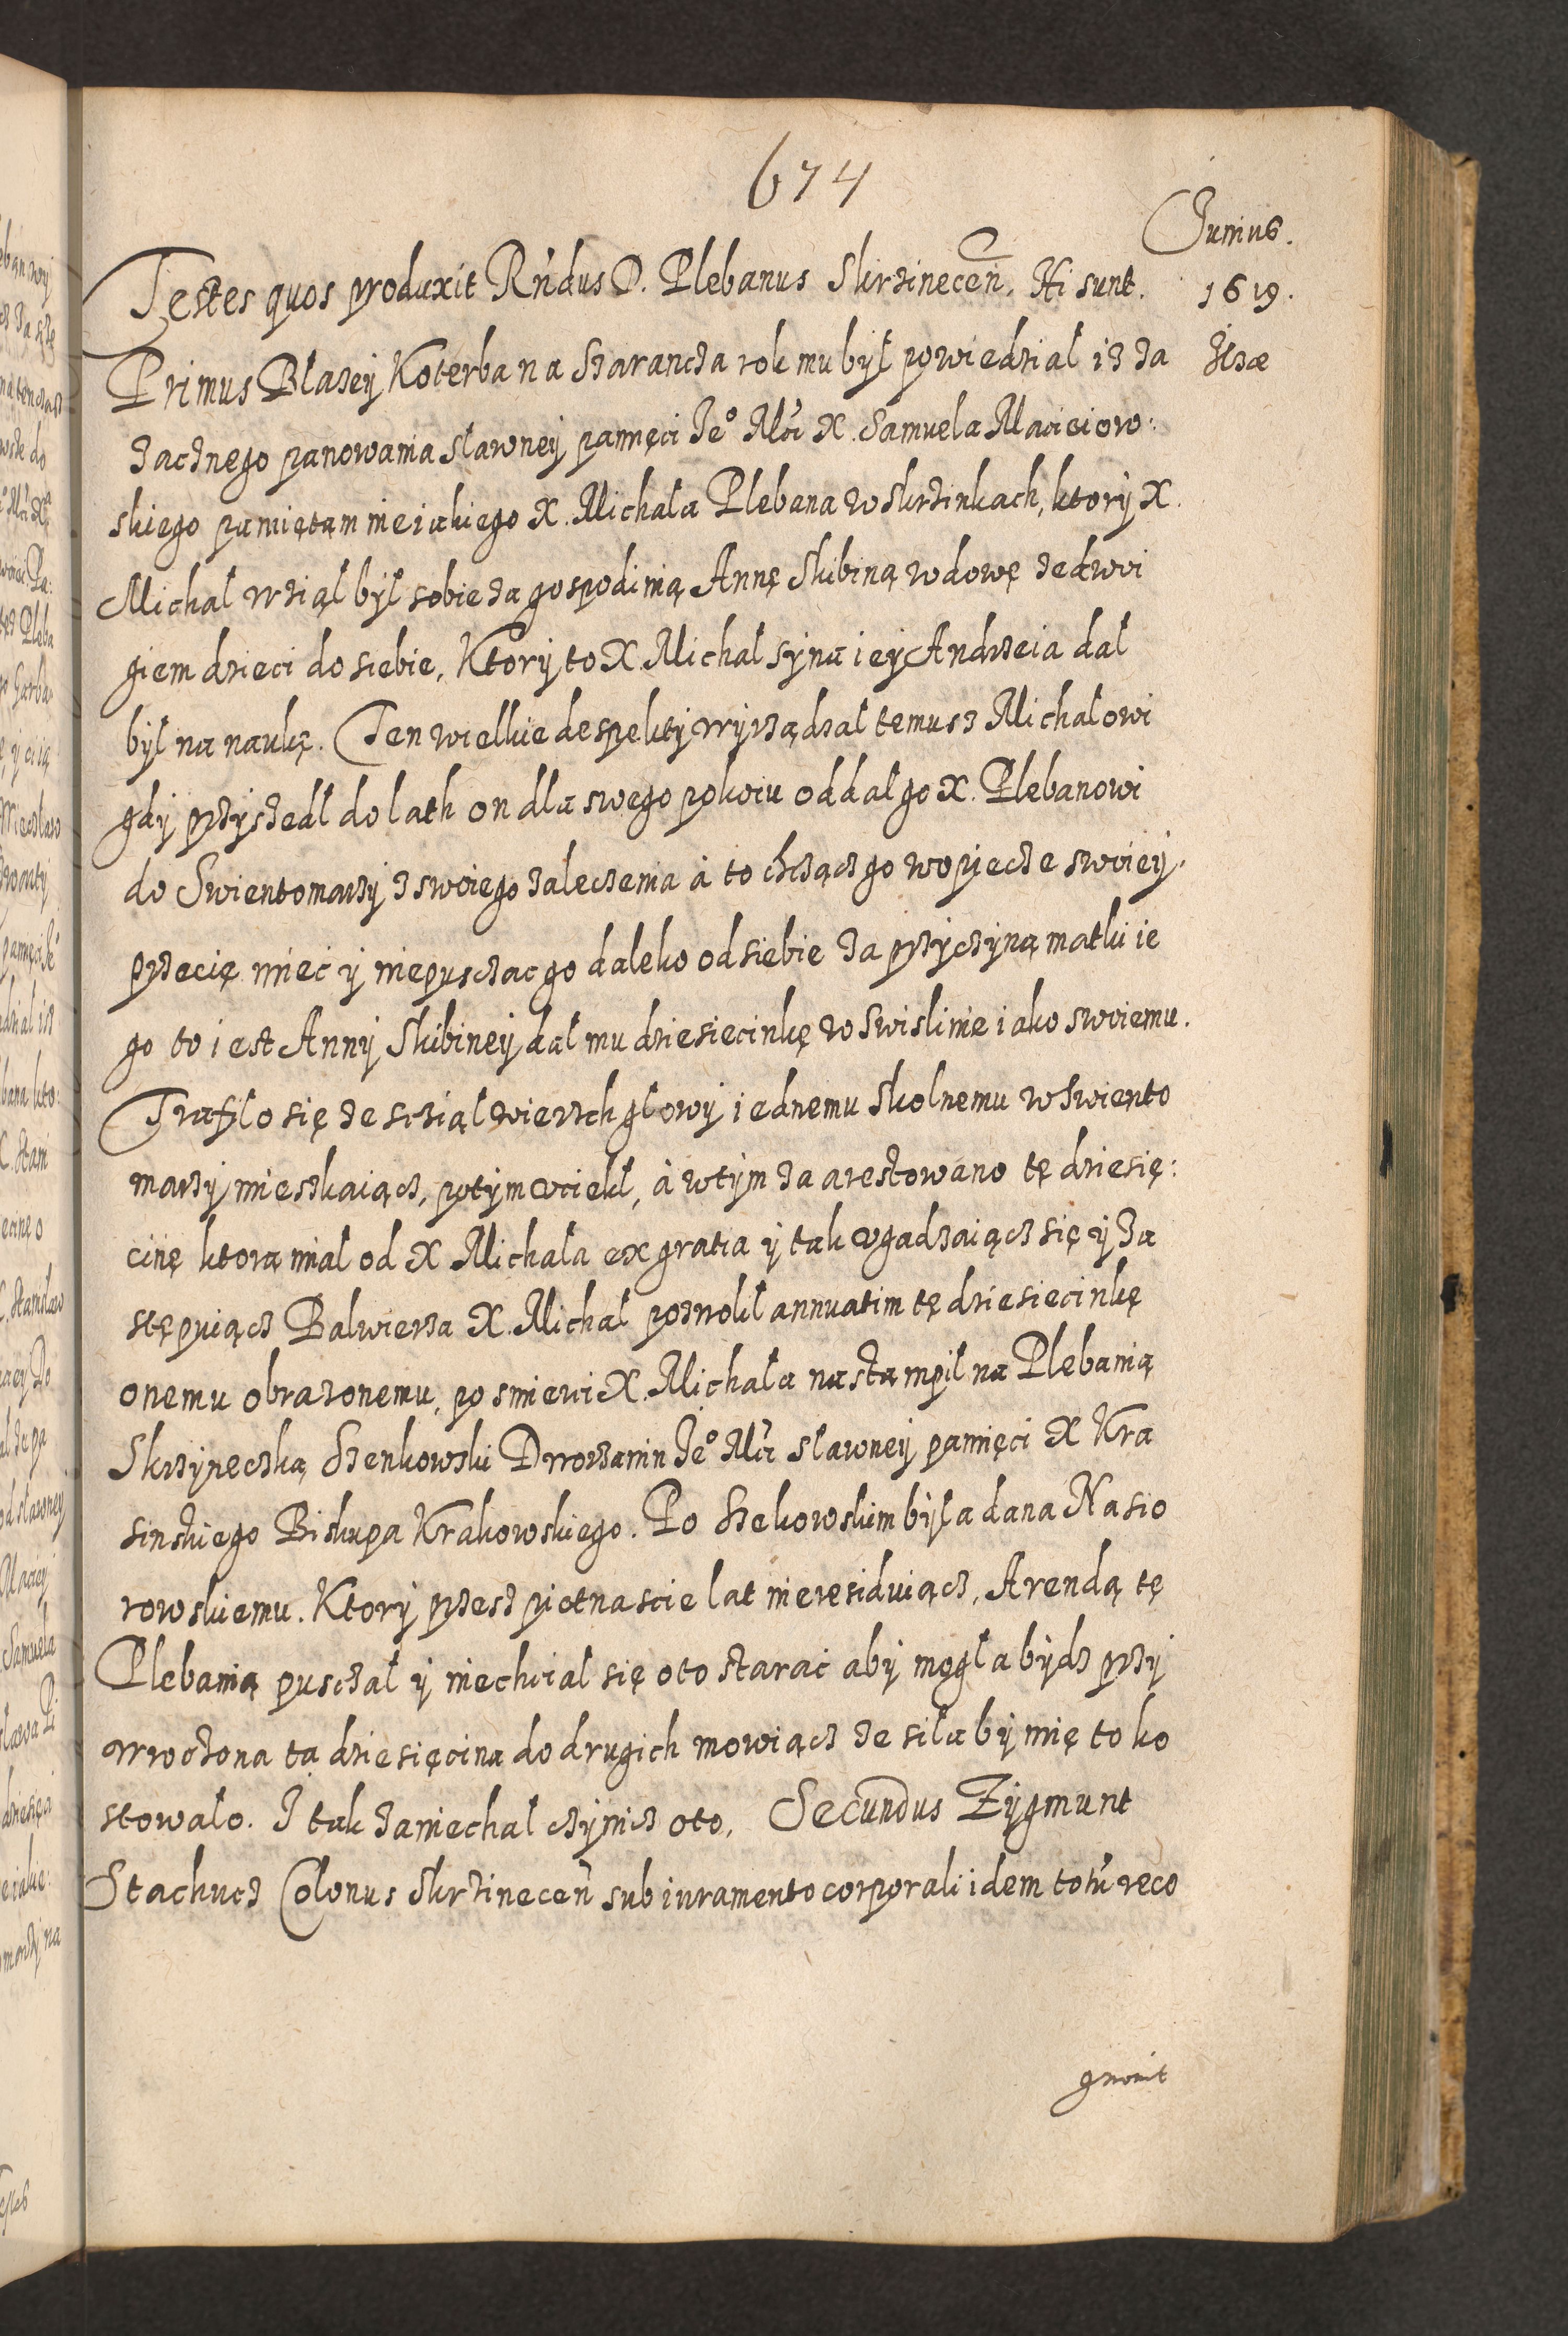 674
Junius.
Testes quos produxit Rńdus D. Plebanus Skrzineceń. Hi sunt. 1619.
Primus Blazej Koterba na Szarancza rok mu był powiedział iż za
zacznego panowania sławney pamięci Je° Mći X. Samuela Macieiow:
skiego pamiętam nieiakiego X. Michała Plebana w Skrzinkach, ktory X.
Michał wziął był sobie za gospodinią Annę Skibiną wdowę ze dwoi
giem dzieci do siebie, Ktory to X Michał syna iey Andrzeia dał
był na naukę. Ten wielkie despekty wyrządzał temusz Michałowi
gdy przyszedł do lath on dla swego pokoiu oddał go X. Plebanowi
do Swientomarzy z swoiego zaleczenia à to chcącz go w opiecze swoiey
przecię mieć y niepusczac go daleko od siebie za przyczyną matki ie
go to iest Anny Skibiney dał mu dziesiecinkę w Swislinie iako swoiemu.
Trafiło się ze scziął wierzch głowy iednemu Skolnemu w Swiento
marzy mieszkaiącz, potym vciekł, à wtym za arestowano tę dziesię:
cinę ktorą miał od X Michała ex gratia y tak vgadzaiącz się y za
stępuiącz Balwierza X. Michał pozwolił annuatim tę dziesiecinkę
onemu obrazonemu, po smierci X. Michała nastąmpił na Plebanią
Skrzyneczką Szenkowski Dworzanin Je° Mći sławney pamięci X Kra
sinskiego Biskupa Krakowskiego. Po Szekowskim była dana Nasio
rowskiemu. Ktory przesz pietnascie lat nieresiduiącz, Arendą tę
Plebanią pusczał y niechciał się oto starać aby mogła bydz przy
wroczona ta dziesięcina do drugich mowiącz ze siła by mię to ko
stowało. I tak zaniechał czynicz oto. Secundus Zygmunt
Stachucz Colonus Skrzineceń sub iuramento corporali idem totú reco
gnouit